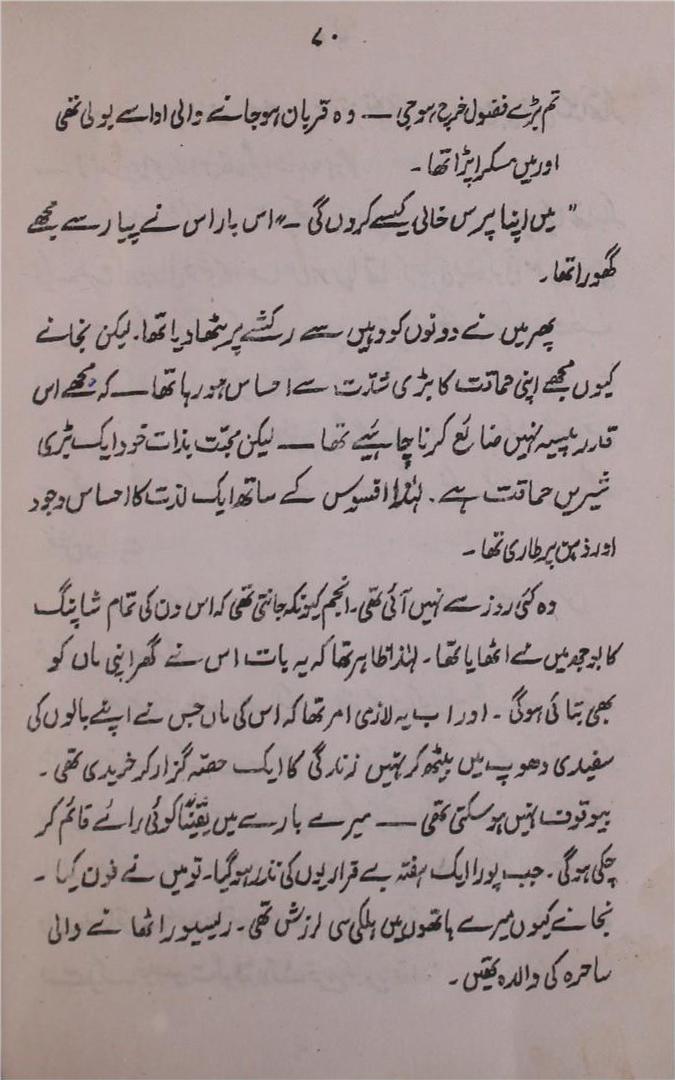 ۷۰
تم بڑے فضول خرچ ہو جی — وہ قربان ہو جانے والی ادا سے بولی تھی
اور میں مسکرا پڑا تھا۔
" میں اپنا پرس خالی کیسے کروں گی ۔" اس بار اس نے پیار سے مجھے
گھورا تھا۔
پھر میں نے دونوں کو وہیں سے رکشے پر بٹھا دیا تھا۔ لیکن نجانے
کیوں مجھے اپنی حماقت کا بڑی شدّت سے احساس ہو رہا تھا — کہ مجھے اس
قدر پیسہ نہیں ضائع کرنا چاہئیے تھا — لیکن محبّت بذات خود ایک بڑی
شیریں حماقت ہے۔ لہٰذا افسوس کے ساتھ ایک لذت کا احساس وجود
اور ذہن پر طاری تھا۔
وہ کئی روز سے نہیں آئی تھی۔ انجم کیونکہ جانتی تھی کہ اس دن کی تمام شاپنگ
کا بوجھ میں نے اٹھایا تھا۔ لہٰذا ظاہر تھا کہ یہ بات اس نے گھر اپنی ماں کو
بھی بتائی ہوگی ۔ اور اب یہ لازمی امر تھا کہ اس کی ماں جس نے اپنے بالوں کی
سفیدی دھوپ میں بیٹھ کر نہیں زندگی کا ایک حصّہ گزار کر خریدی تھی ۔
بیوقوف نہیں ہو سکتی تھی — میرے بارے میں یقیناً کوئی رائے قائم کر
چکی ہوگی ۔ جب پورا ایک ہفتہ بے قراریوں کی نذر ہوگیا۔ تو میں نے فون کیا ۔
نجانے کیوں میرے ہاتھوں میں ہلکی سی لرزش تھی۔ ریسیور اٹھانے والی
ساحرہ کی والدہ تھیں۔